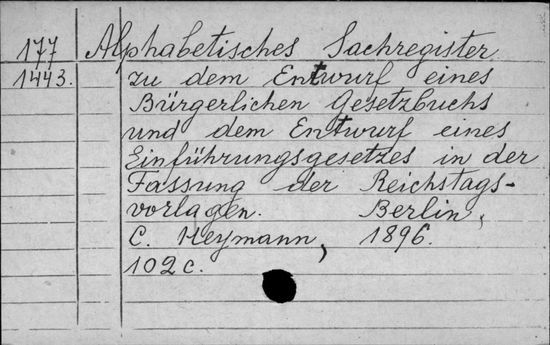 177 Alphabetisches Sachregister
1443. zu dem Entwurf eines
Bürgerlichen Gesetzbuchs
und dem Entwurf eines
Einführungsgesetzes in der
Fassung der Reichstags-
vorlagen. Berlin,
C. Heymann, 1896.
102 c.